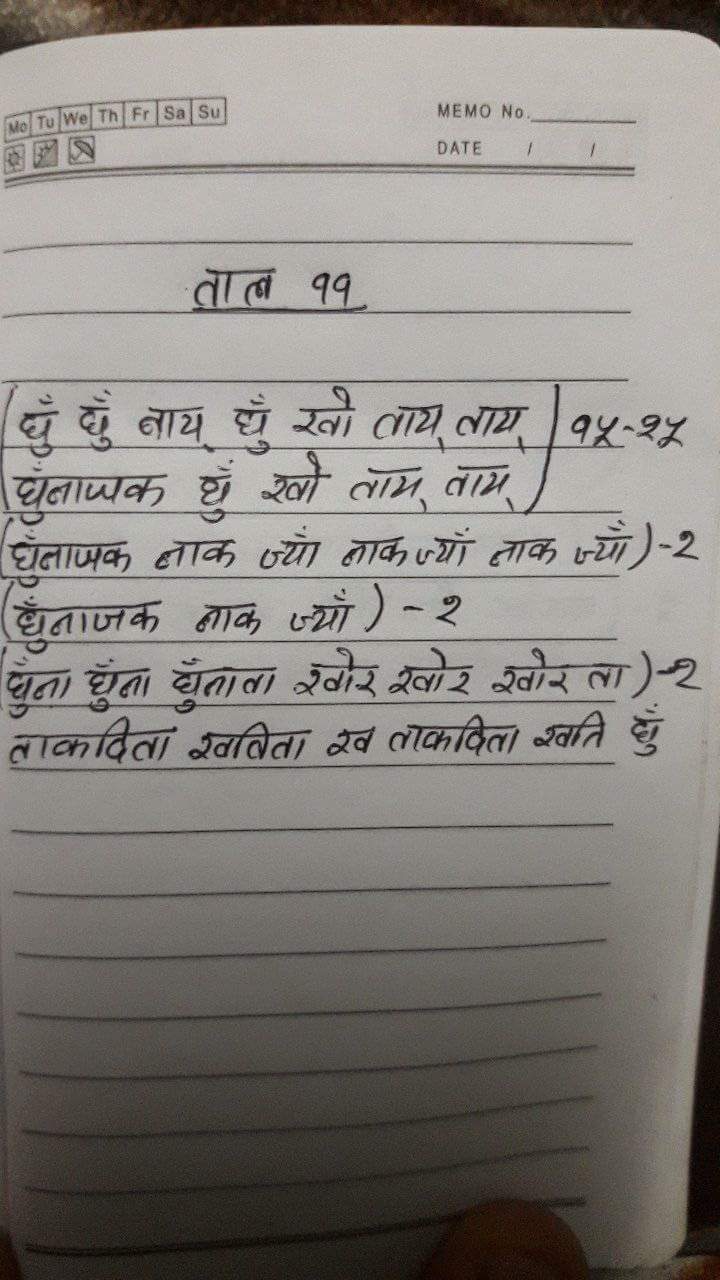 Mo Tu We Th Fr Sa Su
MEMO No.
DATE / /
ताल ११
(घुँ घुँ नाय् घुँ खो ताय् ताय्) १५-२५
(घुँनाजक घुँ खो ताय् ताय्)
(घुँनाजक नाक ज्याँ नाक ज्याँ नाक ज्याँ)-२
(घुँनाजक नाक ज्याँ) - २
(घुँना घुँना घुँनाता खोर खोर खोर ता)-२
ताकदिता खतिता ख ताकदिता खति घुँ